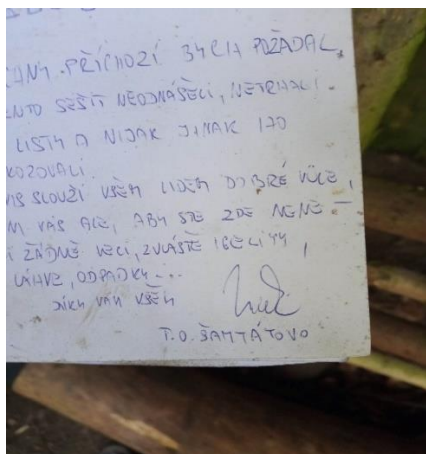 PŘÍCHOZÍ BYCH POŽÁDAL,
SEŠIT NEODNÁŠELI, NETRHALI
LISTY A NIJAK JINAK HO
KOZOVALI.
SLOUŽÍ VŠEM LIDEM DOBRÉ VŮLE,
VÁS ALE, ABY STE ZDE NENE-
I ŽÁDNÉ VĚCI, ZVLÁŠTĚ IGELITY,
LÁHVE, ODPADKY...
DÍKY VÁM VŠEM
T.O. ŠANTÁTOVO